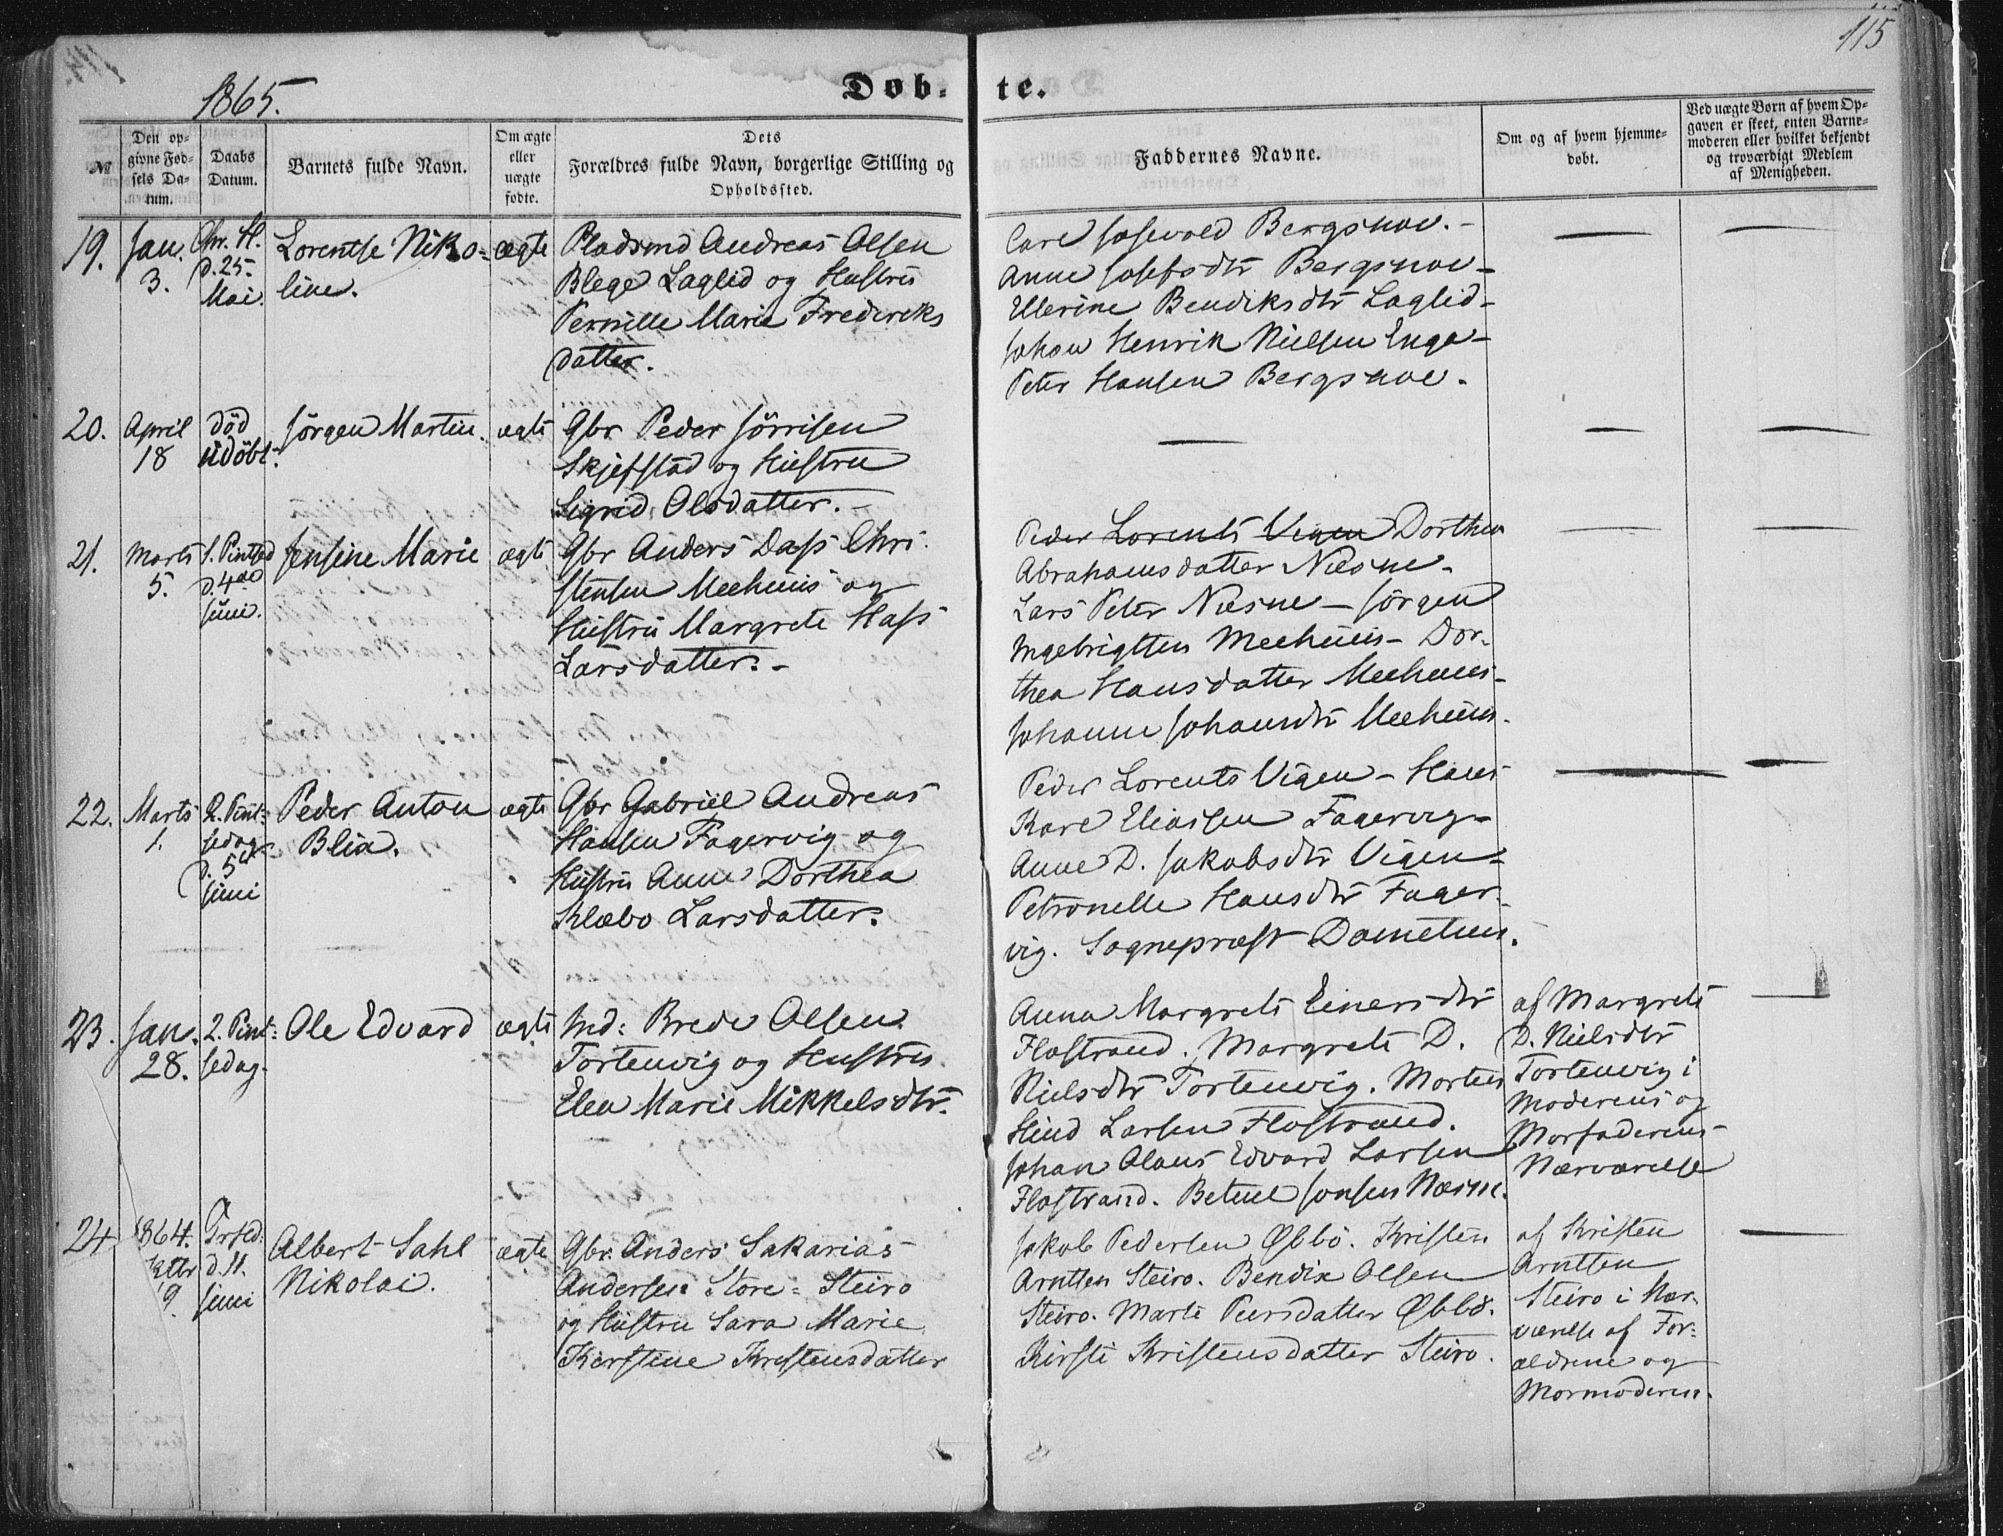 115
1865.
Døb-te.
№
Den op-
givne Fød-
sels Da-
tum.
Daabs
Datum.
Barnets fulde Navn.
Om ægte
eller
uægte
fødte.
Dets
Forældres fulde Navn, borgerlige Stilling og
Opholdssted.
Faddernes Navne.
Om og af hvem hjemme-
døbt.
Ved uægte Børn af hvem Op-
gaven er skeet, enten Barne-
moderen eller hvilket bekjendt
og troværdigt Medlem
af Menigheden.
19.
Jan.
3.
Chr. H.
d. 25
Mai.
Lorentse Niko-
line.
ægte
Pladsmd Andreas Olsen
Blege Laglid og Hustru
Pernille Marie Frederiks
datter.
Carl Bergsnov. -
Anne Josefsdtr Bergsnov -
Ellerine Bendiksdtr Laglid -
Johan Henrik Nielsen Enge -
Peter Hansen Bergsnov.
20.
April
18
død
udøbt.
Jørgen Martin.
ægte
Gbr Peder Jörrisen
Skjefstad og Hustru
Sigrid Olsdatter. -
21.
Marts
5.
1. Pintsed
d. 4de
Juni.
Jensine Marie
ægte
Gbr Anders Dass Chri-
stensen Meehuus og
Hustru Margrete Hass
Larsdatter. -
Peder Lorents Vigen Dorthea
Abrahamsdatter Næsne.
Lars Peter Næsne - Jörgen
Ingebrigtsen Meehuus - Dor-
thea Hansdatter Meehuus -
Johanne Johansdtr Meehuus.
22.
Marts
1.
2. Pint-
sedag
d. 5te
Juni
Peder Anton
Blix.
ægte
Gbr Gabriel Andreas
Hansen Fagervig og
Hustru Anne Dorthea
Klæbo Larsdatter.
Peder Lorents Vigen - Hans
Kare Eliassen Fagervig -
Anne D. Jakobsdtr Vigen -
Petronelle Hansdtr Fager-
vig. Sognepræst
23.
Jan.
28.
2. Pint-
sedag.
Ole Edvard
ægte
Ind: Brede Olsen
Tortenvig og Hustru
Elen Marie Mikkelsdtr.
Anna Margrete Einersdtr
Flostrand. Margrete D.
Nielsdtr Tortenvig. Morten
Hind Larsen Flostrand.
Johan Olaus Edvard Larsen
Flostrand. Betuel Jonsen Næsne.
af Margrete
D. Nielsdtr
Tortenvig i
Moderens og
Morfaderens
Nærværelse
24
1864.
9
Trfld.
d. 11.
Juni
Albert Sahl
Nikolai.
ægte
Gbr. Anders Sakarias
Andersen Store-Steiro
og Hustru Sara Marie
Kerstine Kristensdatter
Jakob Pedersen Øbbö. Kristen
Arntsen Steiro. Bendix Olsen
Steiro. Marte Peersdatter Øbbö.
Kirsti Kristensdatter Steiro.
af Kristen
Arntsen
Steiro i Nær-
værelse af For-
ældrene og
Mormoderen.